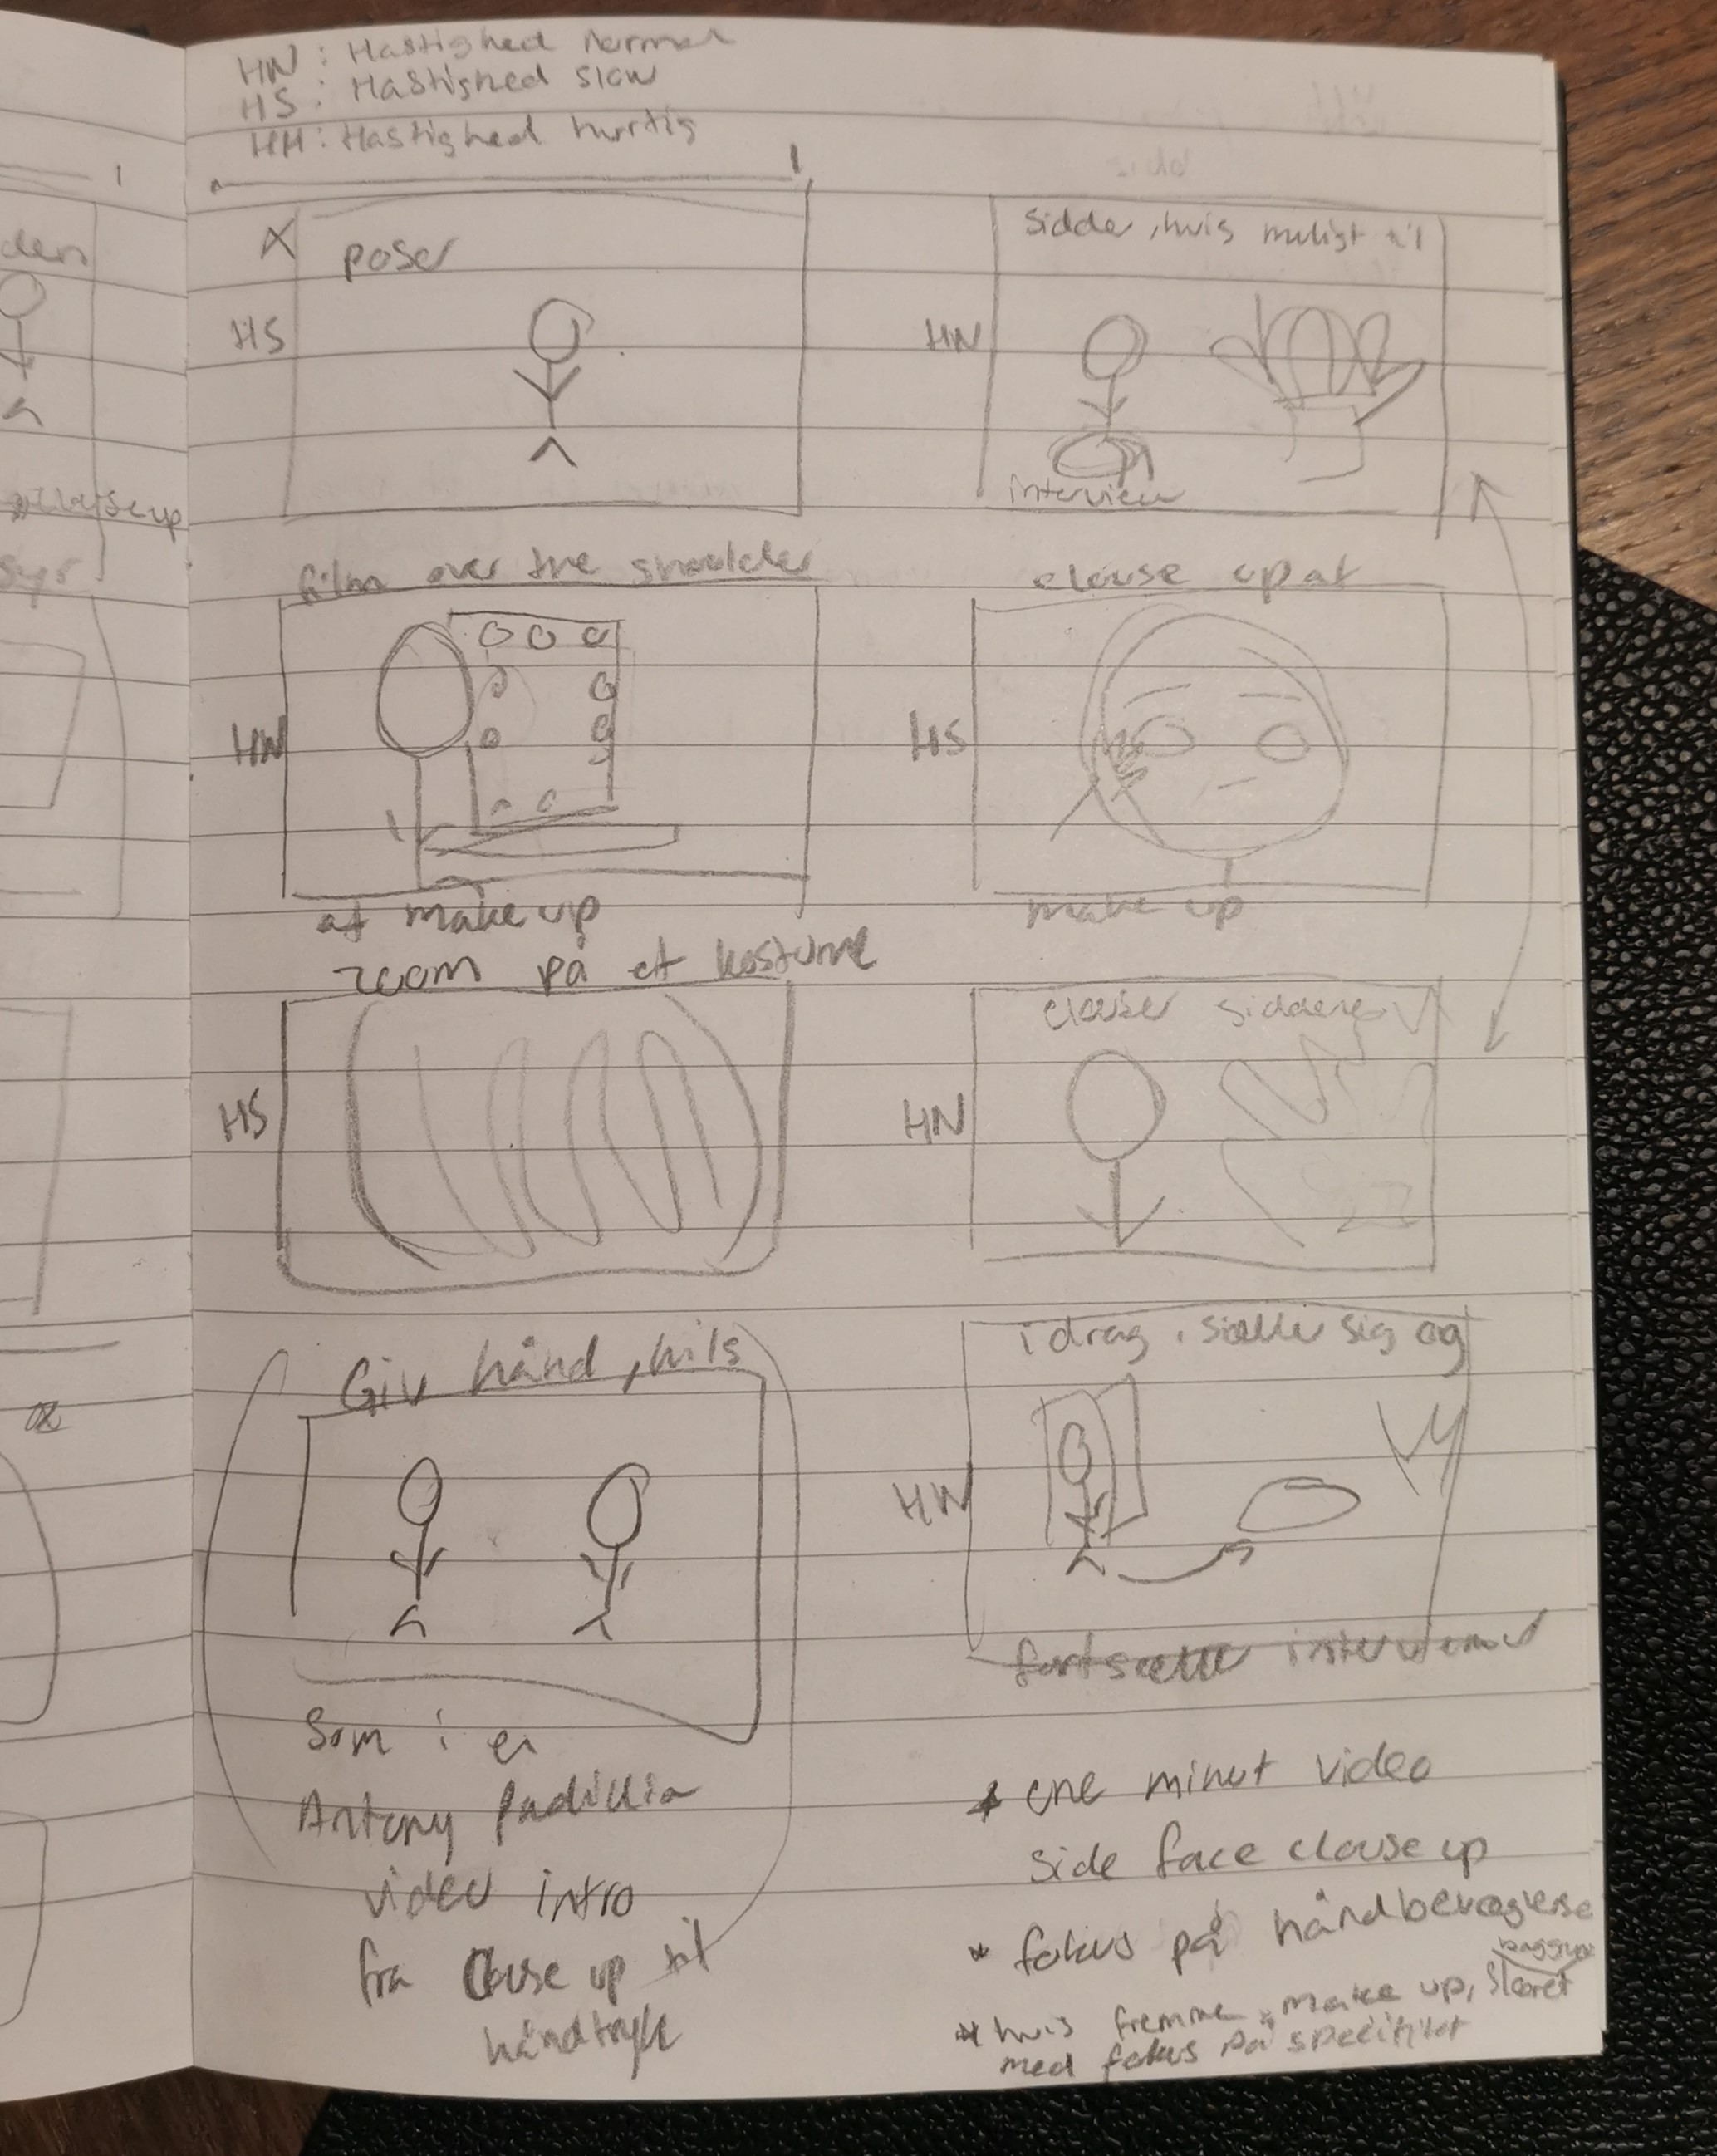 HN : Hastighed normal
HS : Hastighed slow
HH : Hastighed hurtig
den
closeup
X
poser
HS
sidder, hvis muligt til
HN
interview
film over the shoulder
HN
af make up
clouse up af
HS
make up
zoom på et kostume
HS
clouser siddene
HN
Giv hånd, hils
Som i en
Antony Padillia
video intro
fra Clouse up til
håndtryk
i drag, sætter sig og
HN
fortsætter interviewet
* one minut video
side face clouse up
* fokus på håndbevægelse
* hvis fremme, make up, sløret baggrund
med fokus på specifikt